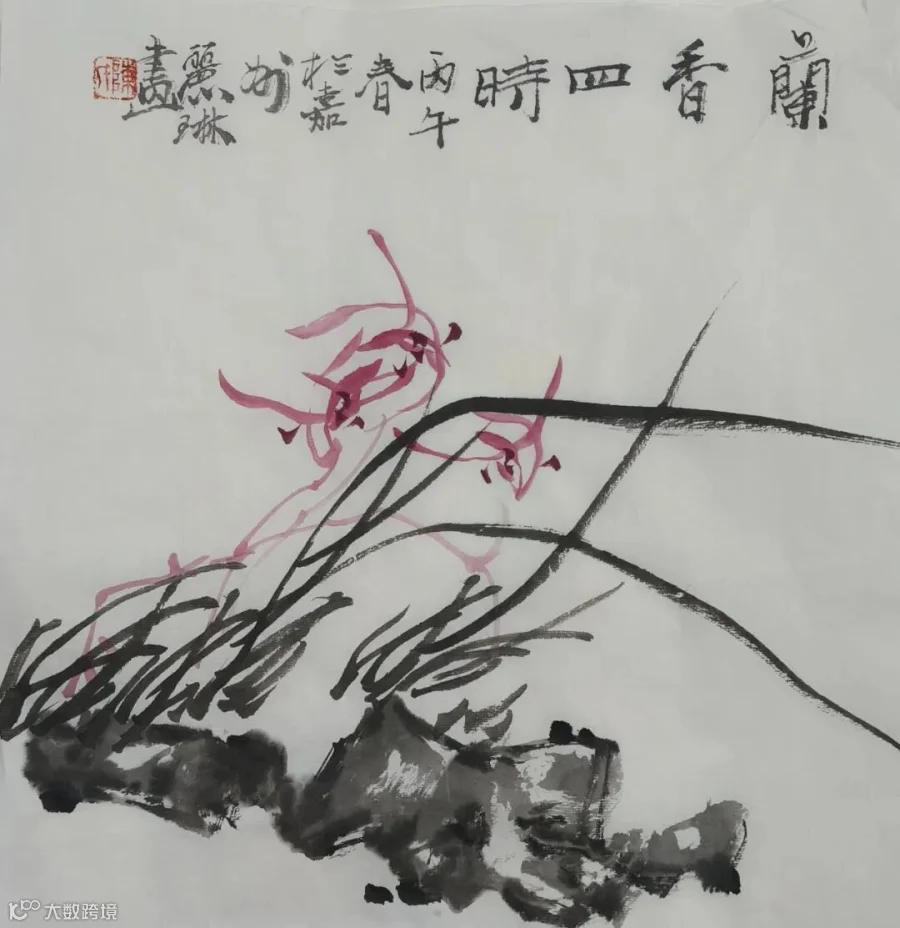 蘭香四時 丙午春於嘉州麗琳畫
大数跨境